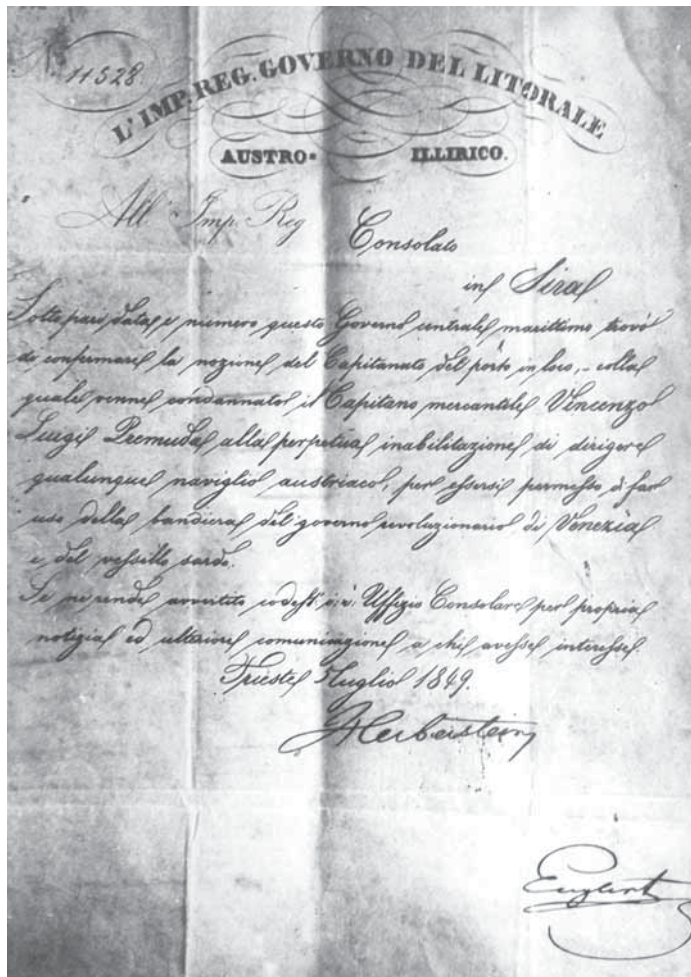 N. 11528.
L'IMP. REG. GOVERNO DEL LITORALE
AUSTRO- ILLIRICO.
All' Imp. Reg Consolato
in Sira
Sotto pari data e numero questo Governo centrale marittimo trovò
do confermare la nozione del Capitanato del porto in loco, - colla
quale venne condannato il Capitano mercantile Vincenzo
Luigi Premuda alla perpetua inabilitazione di dirigere
qualunque naviglio austriaco, per essersi permesso di far
uso della bandiera del governo revoluzionario di Venezia
e del vessillo sardo.
Se ne rende avvertito codest' i. r. Uffizio Consolare per propria
notizia ed ulteriore comunicazione a chi avesse interesse.
Trieste 5 Luglio 1849.
Herberstein